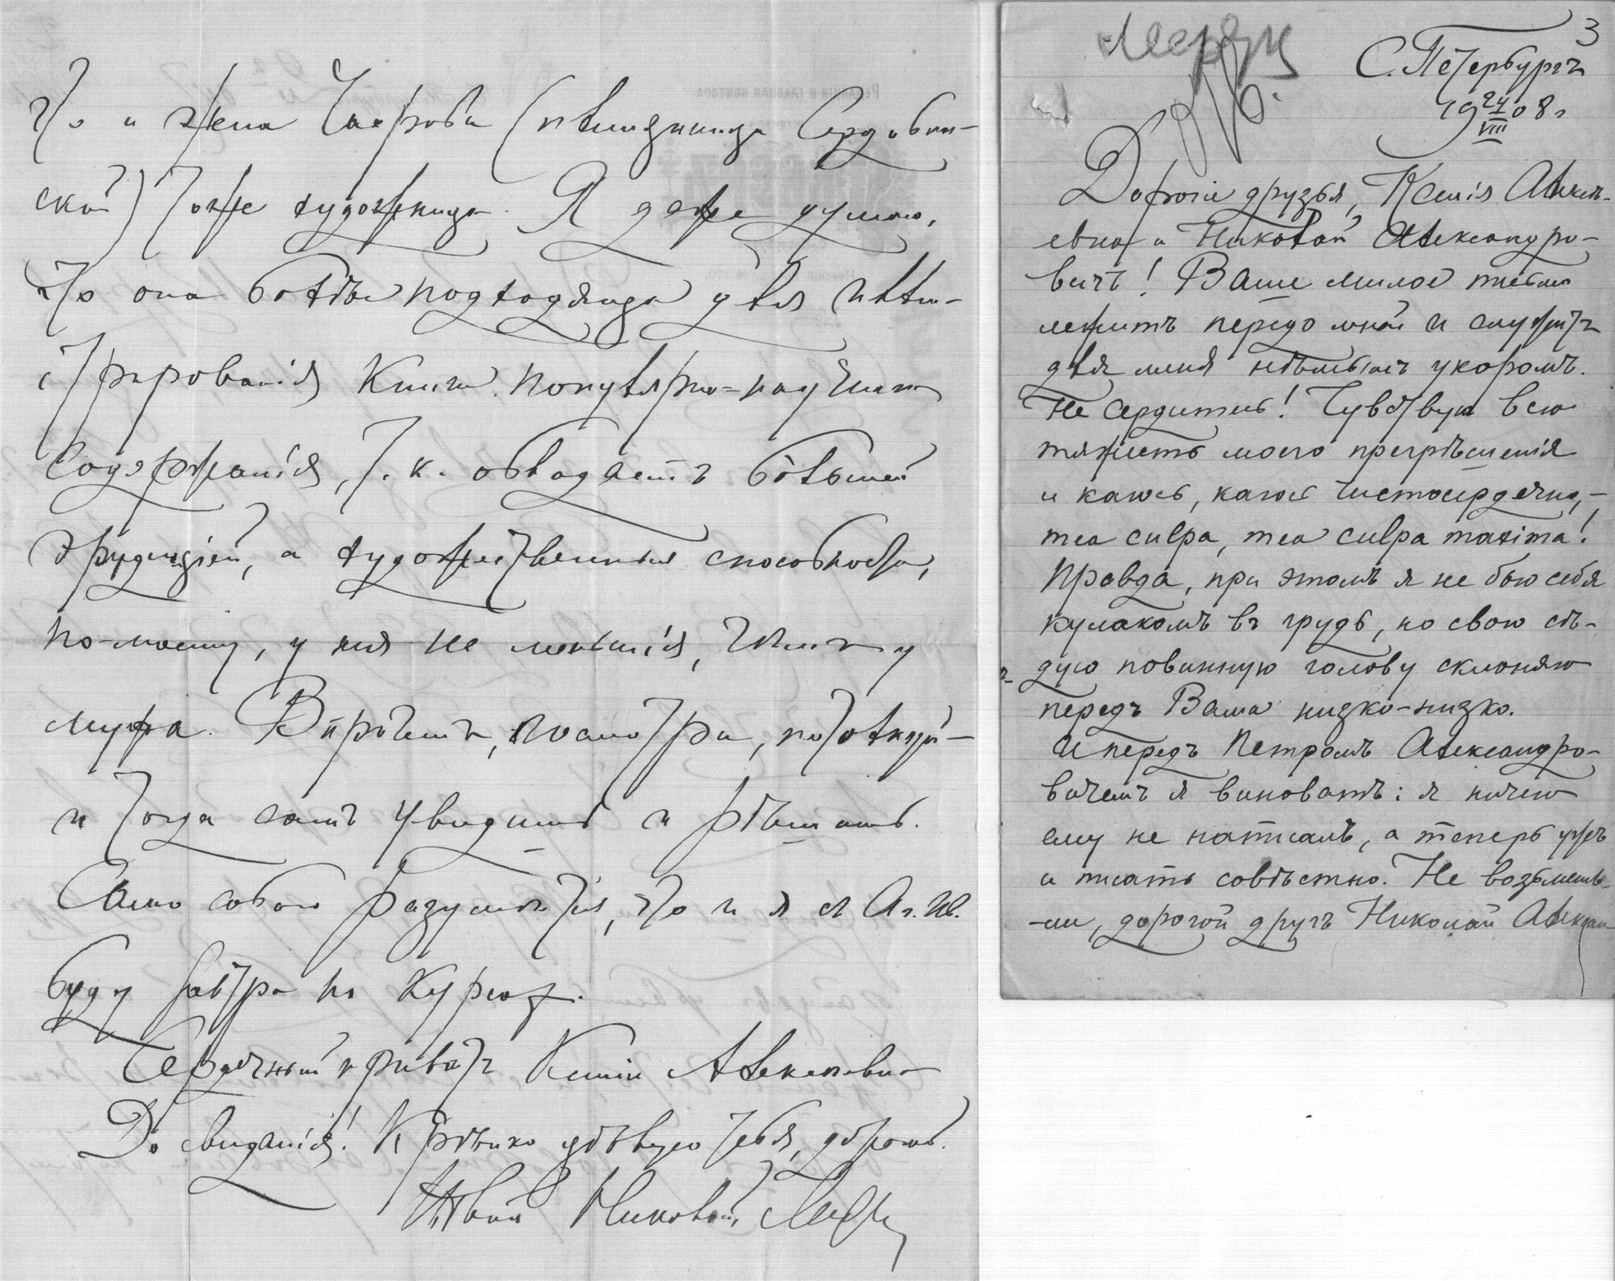 что и жена Чахрова (племянница Сердобин-
ской) тоже художница. Я даже думаю,
что она болѣе подходяща для иллю-
стрированія книги популярно-научнаго
содержанія, т. к. обладаетъ большей
эрудиціей, а художественныя способности,
по-моему, у нея не меньшія, чѣмъ у
мужа. Впрочемъ, посмотри, потолкуй –
и тогда самъ увидишь и рѣшишь.
Само собою разумѣется, что и я и Ал. Ив.
буду завтра на Курсах.
Сердечный привѣтъ Ксеніи Алексѣевнѣ
До свиданія! Крѣпко цѣлую тебя, дорогой.
Твой Николай
3
С. Петербургъ
19 24/VIII 08 г
Дорогіе друзья, Ксенія Алексѣ-
евна и Николай Александро-
вичъ! Ваше милое письмо
лежитъ передо мной и служитъ
для меня нѣмымъ укоромъ.
Не сердитесь! Чувствую всю
тяжесть моего прегрѣшенія
и каюсь, каюсь чистосердечно, –
mea culpa, mea culpa maxima!
Правда, при этомъ я не бью себя
кулакомъ въ грудь, но свою сѣ-
дую повинную голову склоняю
передъ Вами низко-низко.
И передъ Петромъ Александро-
вичемъ я виноватъ: я ничего
ему не написалъ, а теперь ужъ
и писать совѣстно. Не возьмешь-
-ли, дорогой другъ Николай Александ